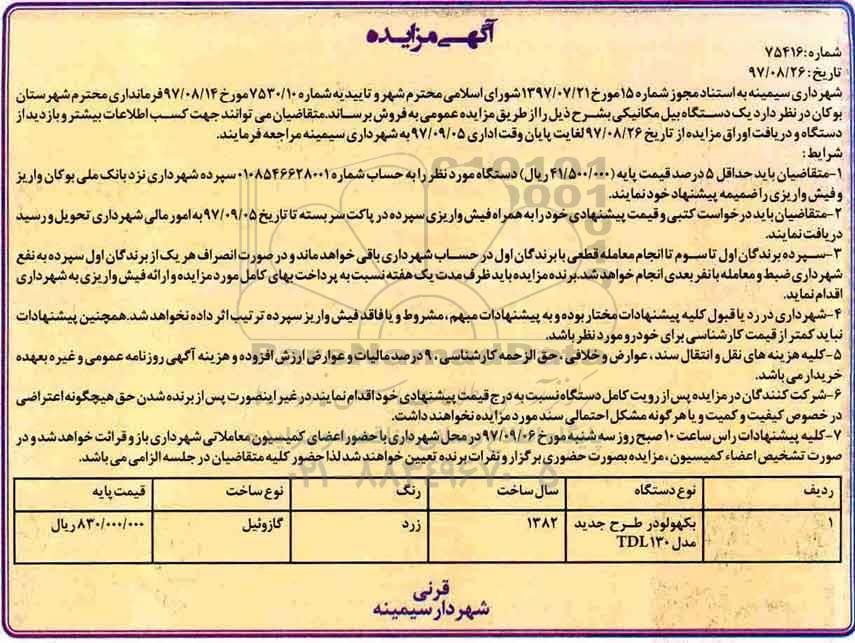 آگهی مزایده
شماره: ۷۵۴۱۶
تاریخ: ۹۷/۰۸/۲۶
شهرداری سیمینه به استناد مجوز شماره ۱۵ مورخ ۱۳۹۷/۰۷/۲۱ شورای اسلامی محترم شهر و تاییدیه شماره ۷۵۳۰/۱۰ مورخ ۹۷/۰۸/۱۴ فرمانداری محترم شهرستان
بوکان در نظر دارد یک دستگاه بیل مکانیکی بشرح ذیل را از طریق مزایده عمومی به فروش برساند. متقاضیان می توانند جهت کسب اطلاعات بیشتر و بازدید از
دستگاه و دریافت اوراق مزایده از تاریخ ۹۷/۰۸/۲۶ لغایت پایان وقت اداری ۹۷/۰۹/۰۵ به شهرداری سیمینه مراجعه فرمایند.
شرایط:
۱-متقاضیان باید حداقل ۵ درصد قیمت پایه (۴۱/۵۰۰/۰۰۰ ریال) دستگاه مورد نظر را به حساب شماره ۰۱۰۸۵۴۶۶۲۸۰۰۱ سپرده شهرداری نزد بانک ملی بوکان واریز
و فیش واریزی را ضمیمه پیشنهاد خود نمایند.
۲-متقاضیان باید درخواست کتبی و قیمت پیشنهادی خود را به همراه فیش واریزی سپرده در پاکت سر بسته تا تاریخ ۹۷/۰۹/۰۵ به امور مالی شهرداری تحویل و رسید
دریافت نمایند.
۳-سپرده برندگان اول تا سوم تا انجام معامله قطعی با برندگان اول در حساب شهرداری باقی خواهد ماند و در صورت انصراف هر یک از برندگان اول سپرده به نفع
شهرداری ضبط و معامله با نفر بعدی انجام خواهد شد. برنده مزایده باید ظرف مدت یک هفته نسبت به پرداخت بهای کامل مورد مزایده و ارائه فیش واریزی به شهرداری
اقدام نماید.
۴-شهرداری در رد یا قبول کلیه پیشنهادات مختار بوده و به پیشنهادات مبهم، مشروط و یا فاقد فیش واریز سپرده ترتیب اثر داده نخواهد شد. همچنین پیشنهادات
نباید کمتر از قیمت کارشناسی برای خودرو مورد نظر باشد.
۵-کلیه هزینه های نقل و انتقال سند، عوارض و خلافی، حق الزحمه کارشناسی، ۹۰ درصد مالیات و عوارض ارزش افزوده و هزینه آگهی روزنامه عمومی و غیره بعهده
خریدار می باشد.
۶-شرکت کنندگان در مزایده پس از رویت کامل دستگاه نسبت به درج قیمت پیشنهادی خود اقدام نمایند در غیر اینصورت پس از برنده شدن حق هیچگونه اعتراضی
در خصوص کیفیت و کمیت و یا هرگونه مشکل احتمالی سند مورد مزایده نخواهند داشت.
۷-کلیه پیشنهادات راس ساعت ۱۰ صبح روز سه شنبه مورخ ۹۷/۰۹/۰۶ در محل شهرداری با حضور اعضای کمیسیون معاملاتی شهرداری باز و قرائت خواهد شد و در
صورت تشخیص اعضاء کمیسیون، مزایده بصورت حضوری برگزار و نفرات برنده تعیین خواهند شد لذا حضور کلیه متقاضیان در جلسه الزامی می باشد.
ردیف نوع دستگاه سال ساخت رنگ نوع ساخت قیمت پایه
۱ بکهولودر طرح جدید ۱۳۸۲ زرد گازوئیل ۸۳۰/۰۰۰/۰۰۰ ریال
مدل TDL۱۳۰
قرنی
شهردار سیمینه